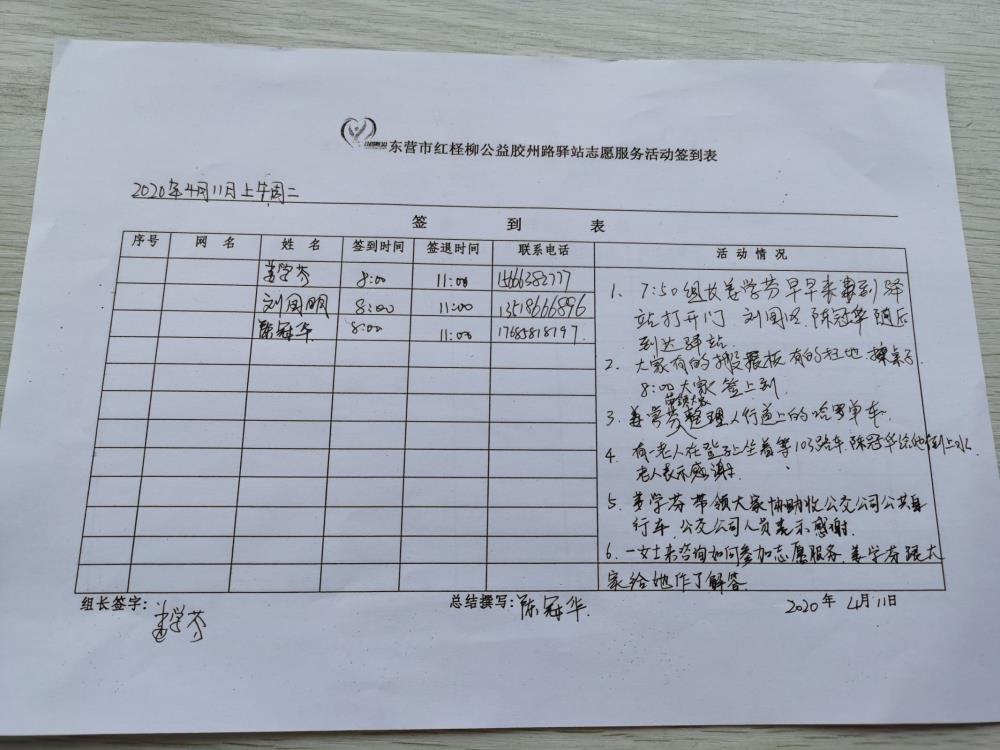 东营市红柽柳公益胶州路驿站志愿服务活动签到表
2020年4月11日上午周二
签 到 表
序号 网 名 姓 名 签到时间 签退时间 联系电话 活 动 情 况
姜学芬 8:00 11:00 15666382777
刘国明 8:00 11:00 13518666896
陈冠华 8:00 11:00 17685818197
1. 7:50组长姜学芬早早来到驿
站打开门 刘国明、陈冠华随后
到达驿站.
2. 大家有的搬展板有的扫地 擦桌子.
8:00大家签上到
3. 姜学芬带领大家整理人行道上的哈罗单车.
4. 有一老人在凳子上坐着等103路车.陈冠华给他倒上水
老人表示感谢
5. 姜学芬带领大家协助收公交公司公共自
行车.公交公司人员表示感谢.
6. 一女士来咨询如何参加志愿服务.姜学芬跟大
家给她作了解答.
组长签字: 姜学芬
总结撰写: 陈冠华
2020年 4月11日